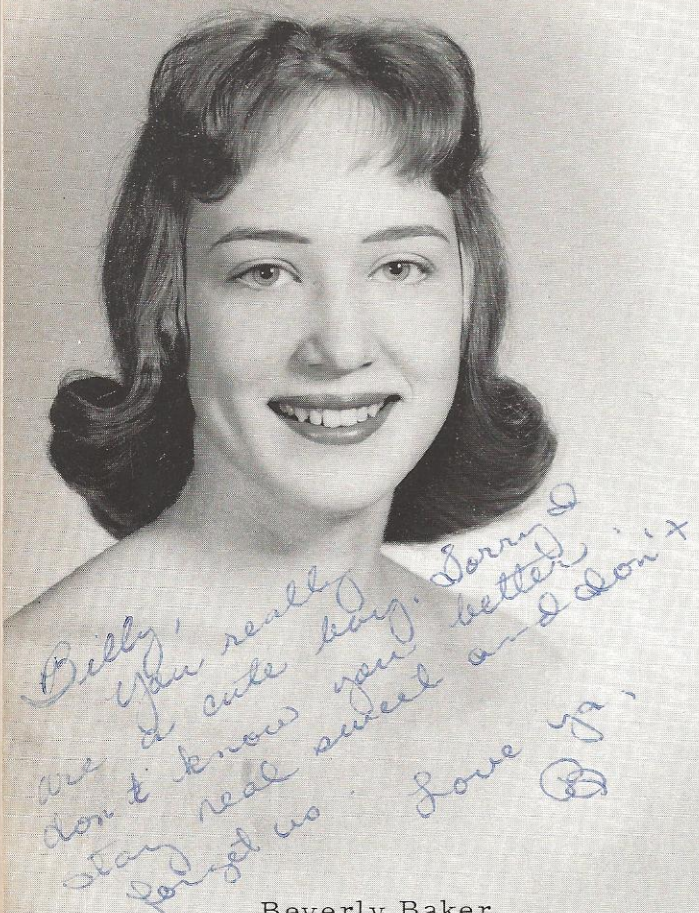 Billy,
You really
are a cute boy. Sorry I
don't know you better
stay real sweet and don't
forget us. Love ya,
B
Beverly Baker